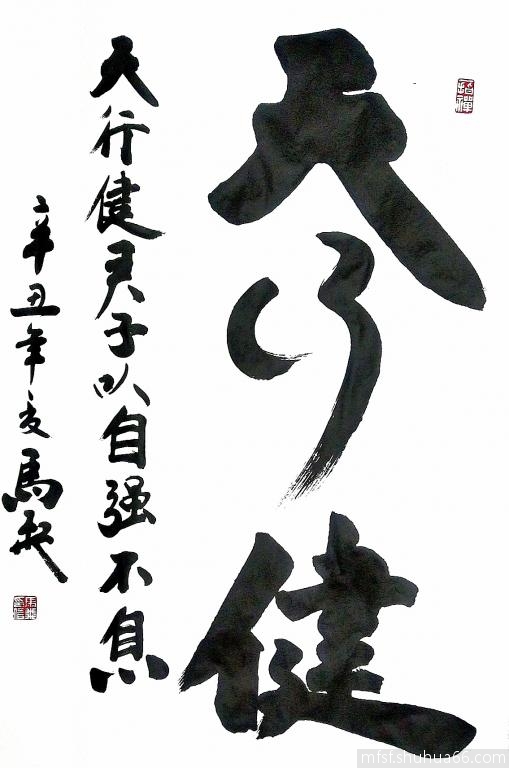 天行健
天行健君子以自强不息
辛丑年夏馬
mfsf.shuhua66.com